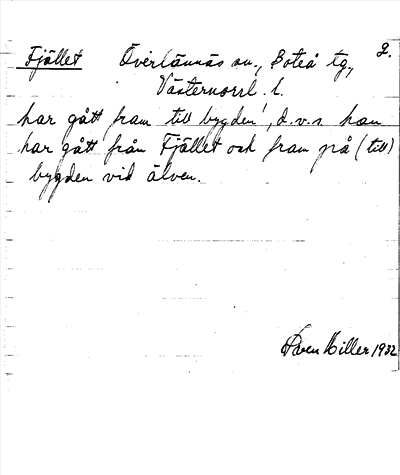 Fjället Överlännäs sn., Boteå tg., 2.
Västernorrl. l.
har gått fram till bygden', d.v.s han
har gått från Fjället och fram på (till)
bygden vid älven.
Sven Hiller 1932